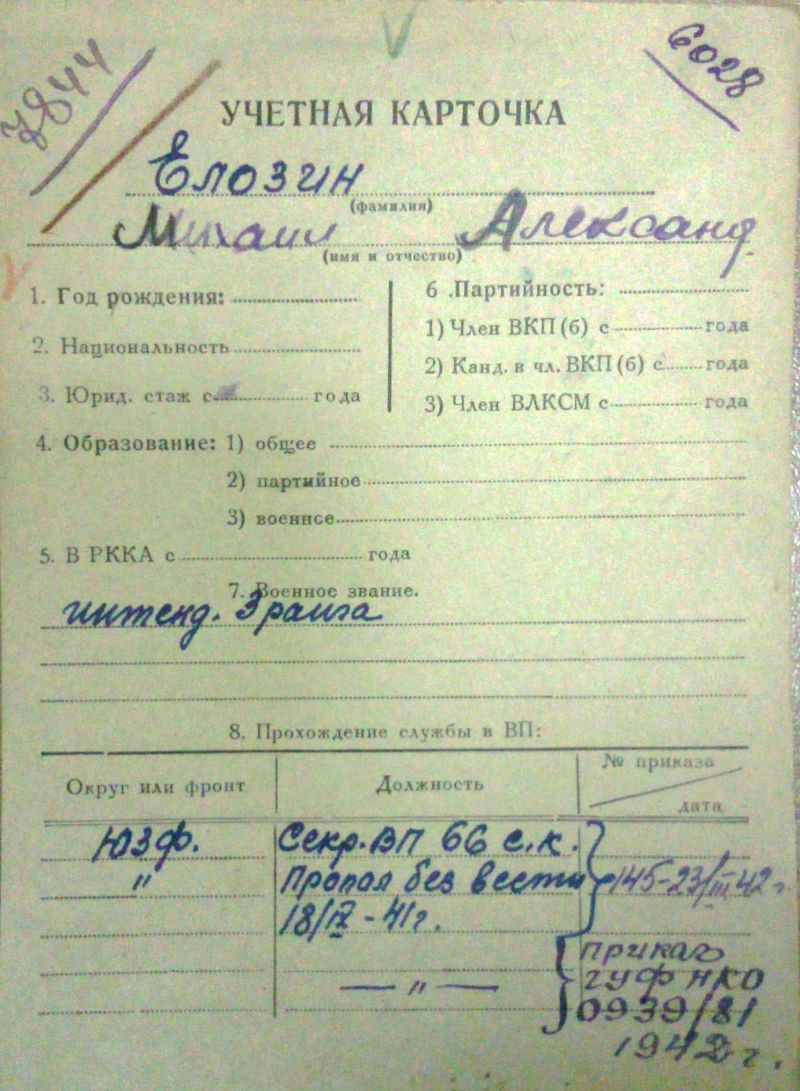 7844
6028
УЧЕТНАЯ КАРТОЧКА
Елозин
(фамилия)
Михаил Александ.
(имя и отчество)
1. Год рождения:
2. Национальность
3. Юрид. стаж с года
4. Образование: 1) общее
2) партийное
3) военнсе
5. В РККА с года
6 .Партийность:
1) Член ВКП(б) с года
2) Канд. в чл. ВКП(б) с года
3) Член ВЛКСМ с года
7. Военное звание.
интенд. 3 ранга
8. Прохождение службы в ВП:
Округ или фронт Должность № приказа дата
ЮЗФ. Секр. ВП 66 с.к.
" Пропал без вести 145-23/III 42 г
18/IX-41г.
—"— приказ
ГУФ НКО
0939/81
1942 г.